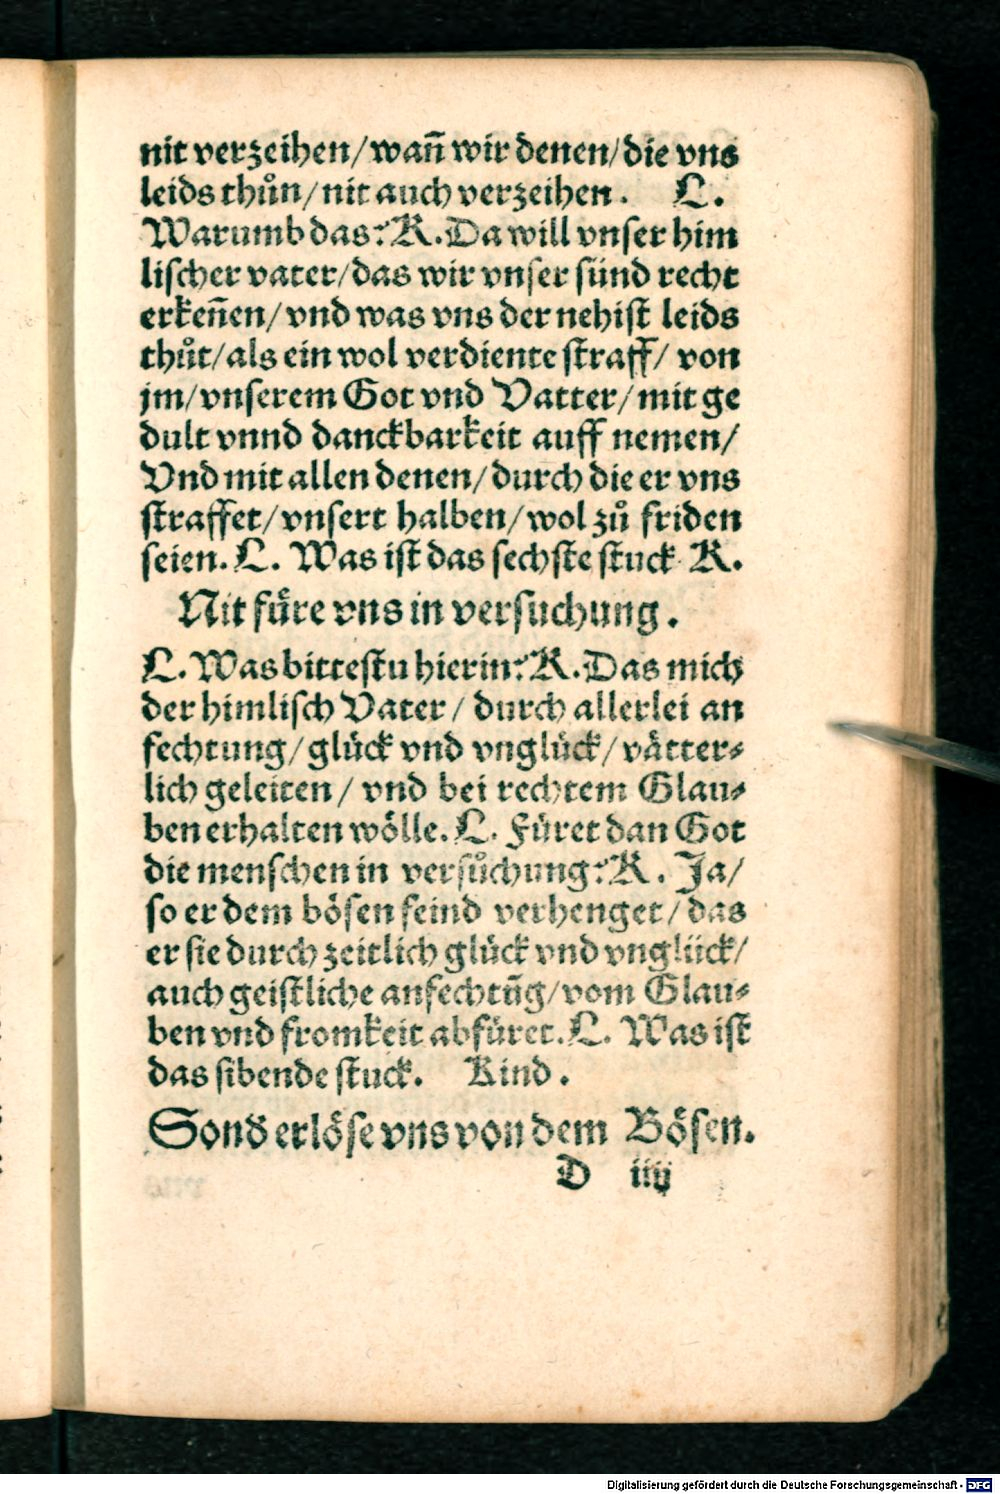 nit verzeihen/wañ wir denen/die vns
leids thůn/nit auch verzeihen. L.
Warumb das? K. Da will vnser him
lischer vater/das wir vnser sünd recht
erkeñen/vnd was vns der nehist leids
thůt/als ein wol verdiente straff/ von
jm/vnserem Got vnd Vatter/mit ge
dult vnnd danckbarkeit auff nemen/
Vnd mit allen denen/durch die er vns
straffet/vnsert halben/wol zů friden
seien. L. Was ist das sechste stuck K.
Nit füre vns in versuchung.
L. Was bittestu hierin? K. Das mich
der himlisch Vater/ durch allerlei an
fechtung/glück vnd vnglück/vätter⸗
lich geleiten/ vnd bei rechtem Glau⸗
ben erhalten wölle. L. Füret dan Got
die menschen in versůchung? K. Ja/
so er dem bösen feind verhenget/das
er sie durch zeitlich glück vnd vnglück/
auch geistliche anfechtūg/vom Glau⸗
ben vnd fromkeit abfüret. L. Was ist
das sibende stuck. Kind.
Sond erlöse vns von dem Bösen.
D iiij
Digitalisierung gefördert durch die Deutsche Forschungsgemeinschaft - DFG